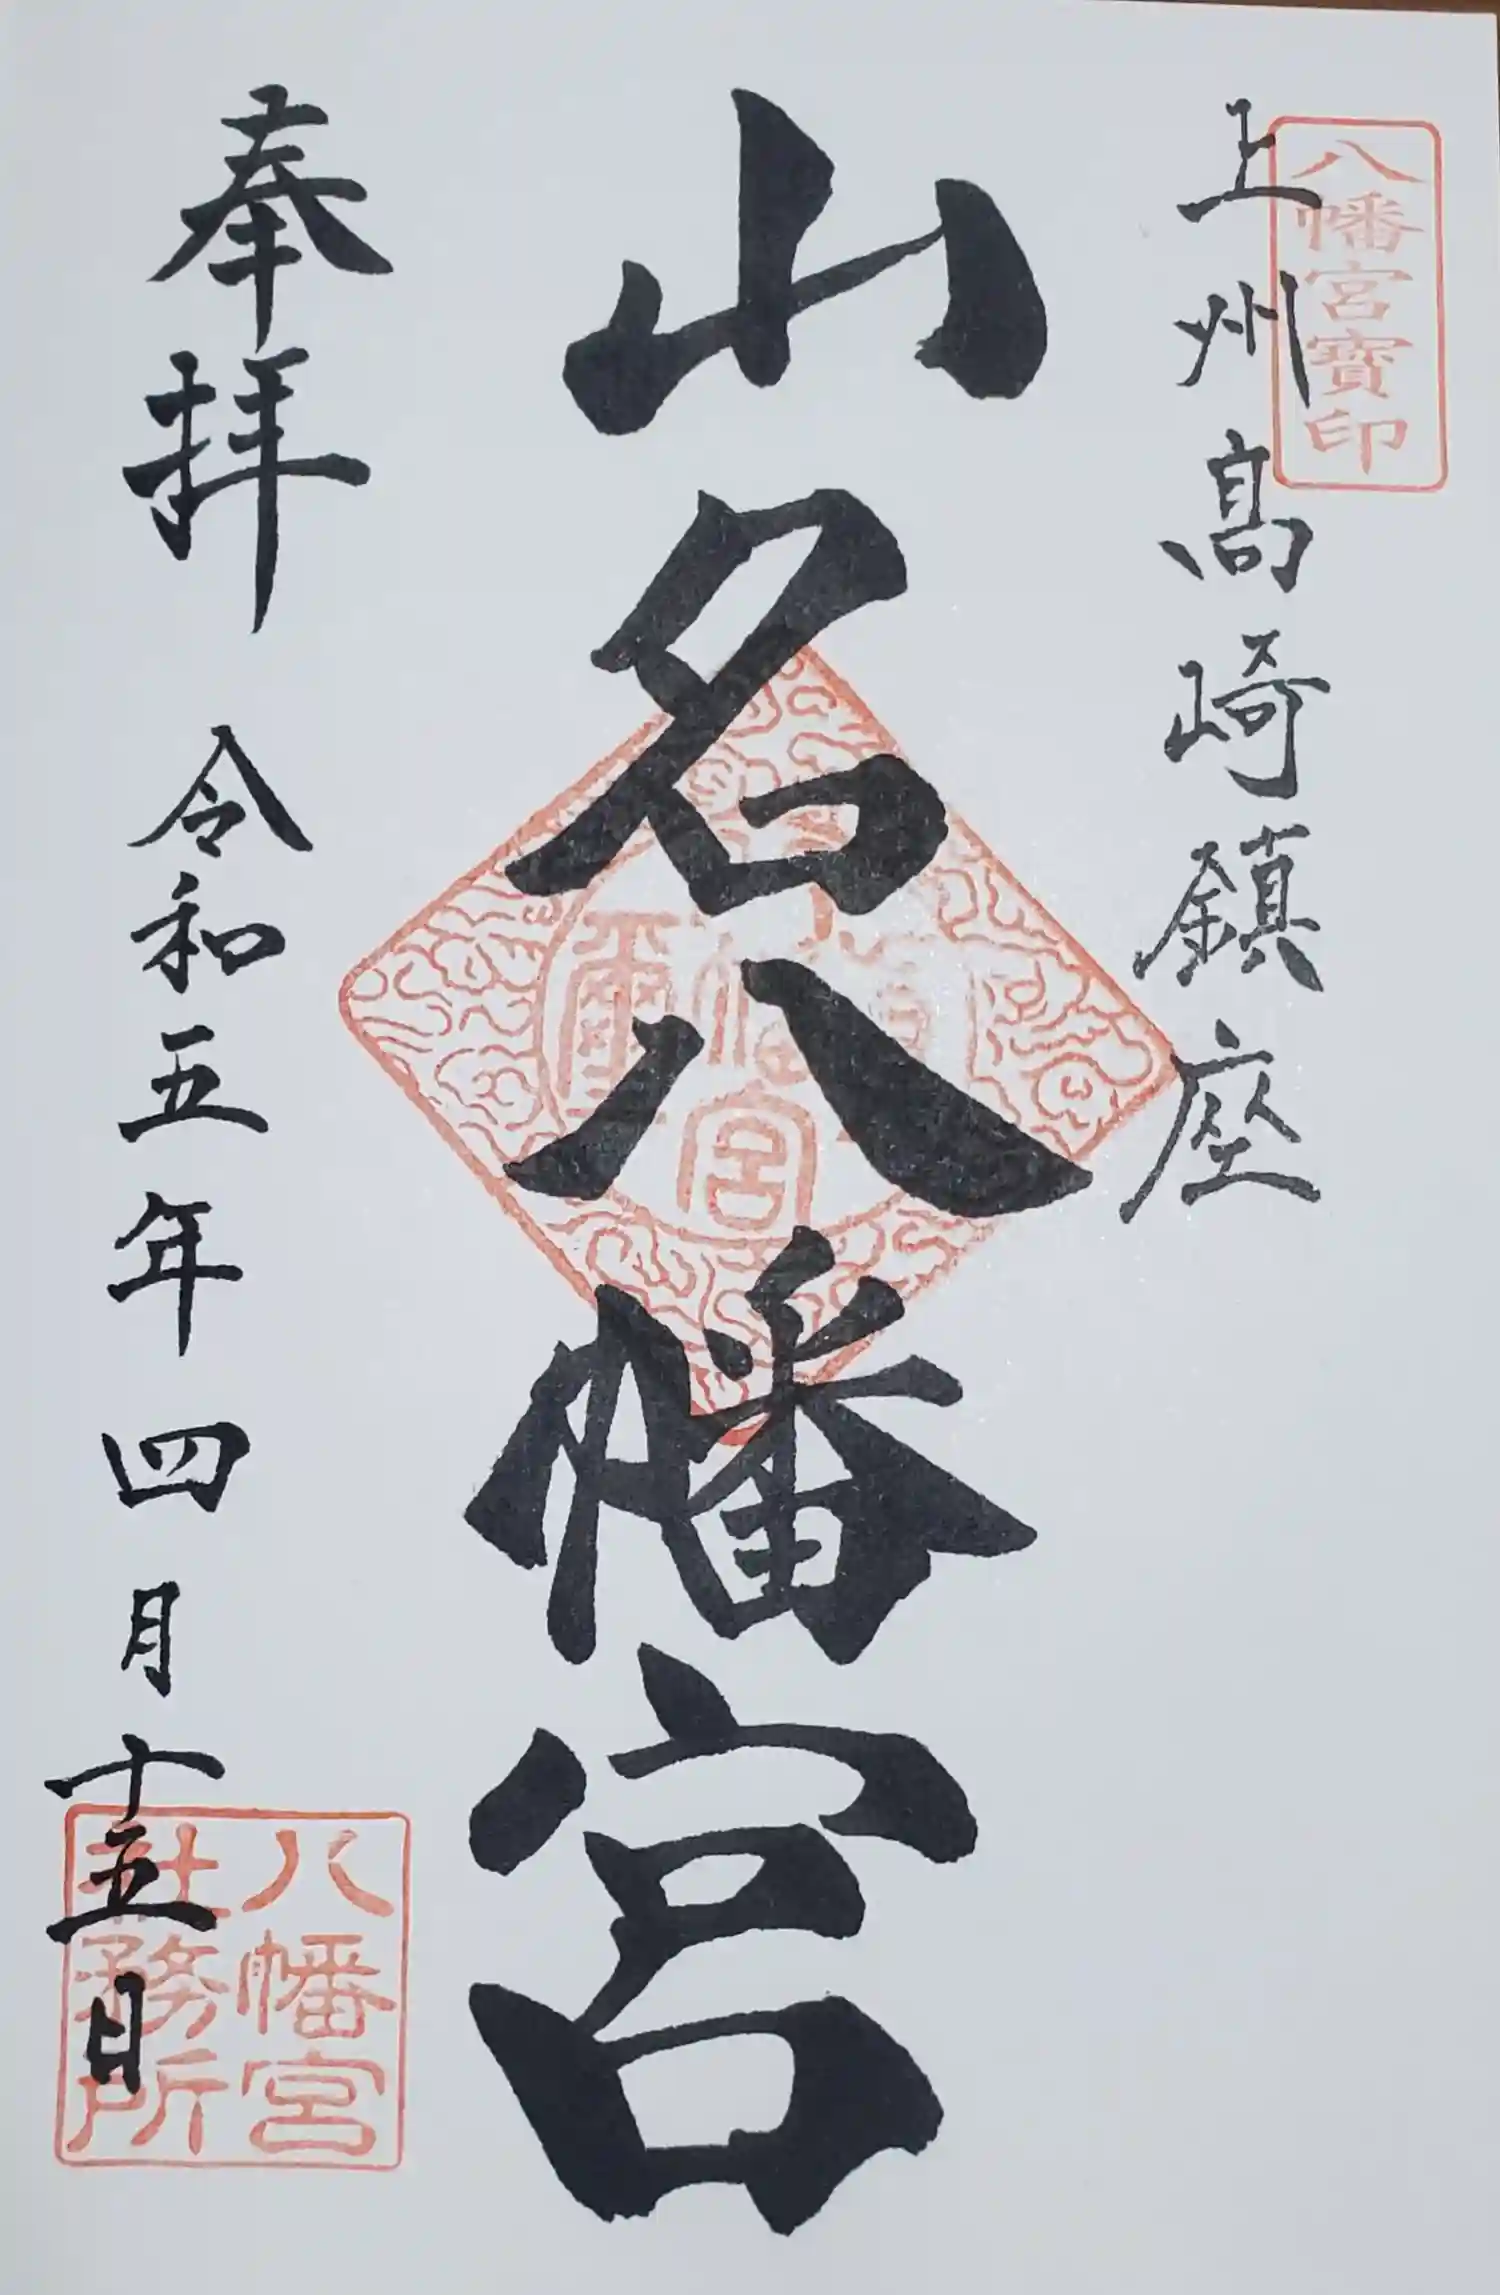 八幡宮寶印
上州髙崎鎮座
山名八幡宮
奉拝
令和五年四月十五日
八幡宮
社務所